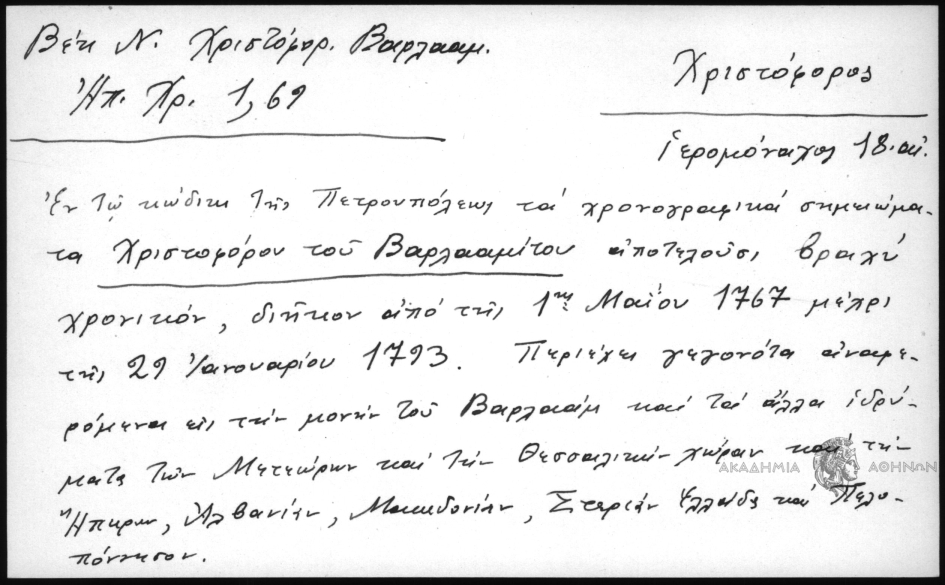 Βέη Ν. Χριστόφορ. Βαρλααμ.
Ἠπ. Χρ. 1, 69
Χριστόφορος
ἱερομόναχος 18. αἰ.
Ἐν τῷ κώδικι τῆς Πετρουπόλεως τά χρονογραφικά σημειώμα-
τα Χριστοφόρου τοῦ Βαρλααμίτου ἀποτελοῦσι βραχύ
χρονικόν, διῆκον ἀπό τῆς 1ης Μαΐου 1767 μέχρι
τῆς 29 Ἰανουαρίου 1793. Περιέχει γεγονότα ἀναφε-
ρόμενα εἰς τήν μονήν τοῦ Βαρλαάμ καί τά ἄλλα ἱδρύ-
ματα τῶν Μετεώρων καί τήν Θεσσαλικήν χώραν καί τήν
Ἤπειρον, Ἀλβανίαν, Μακεδονίαν, Στερεάν Ἑλλάδα καί Πελο-
πόννησον.
ΑΚΑΔΗΜΙΑ ΑΘΗΝΩΝ